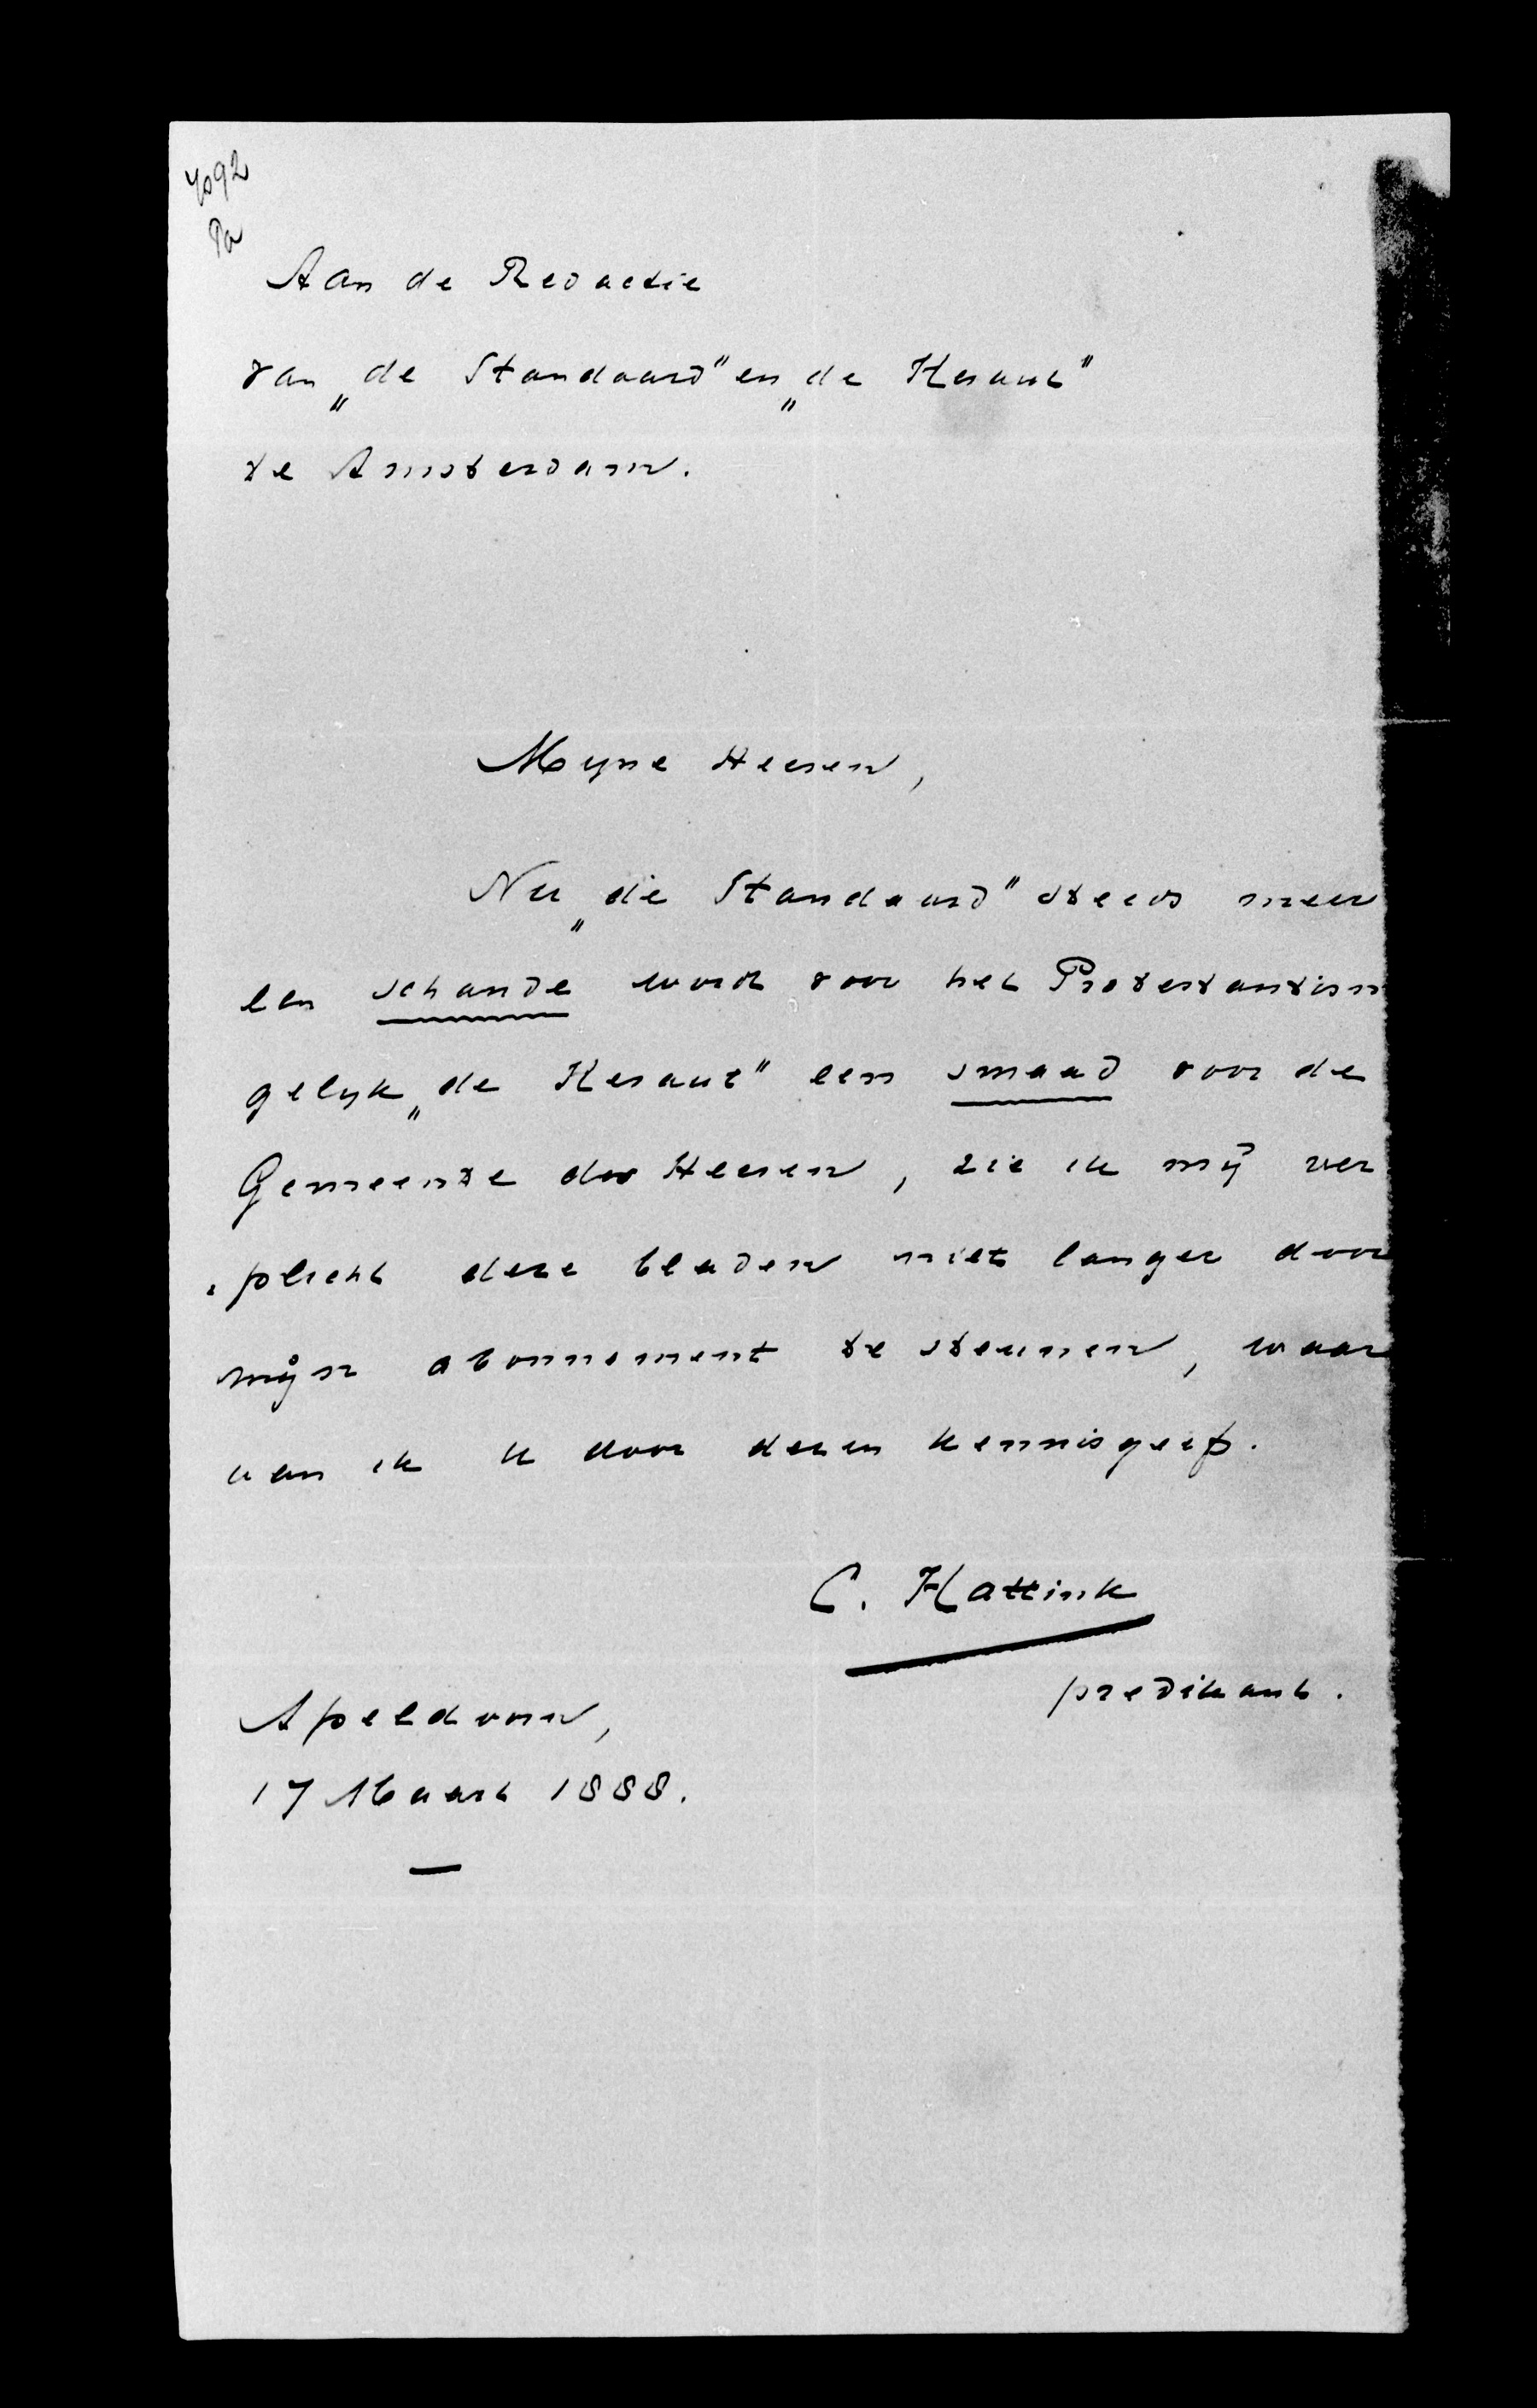 4092
Pa
Aan de Redactie
van „de Standaard" en „de Heraut"
te Amsterdam.
Myne Heeren,
Nu „die Standaard" steeds meer
een schande wordt voor het Protestantism
gelyk „de Heraut" een smaad voor de
Gemeente des Heeren, zie ik mij ver
plicht deze bladen niet langer door
mijn abonnement te steunen, waar
van ik U door dezen kennisgeef.
C. Hattink
predikant.
Apeldoorn,
17 Maart 1888.